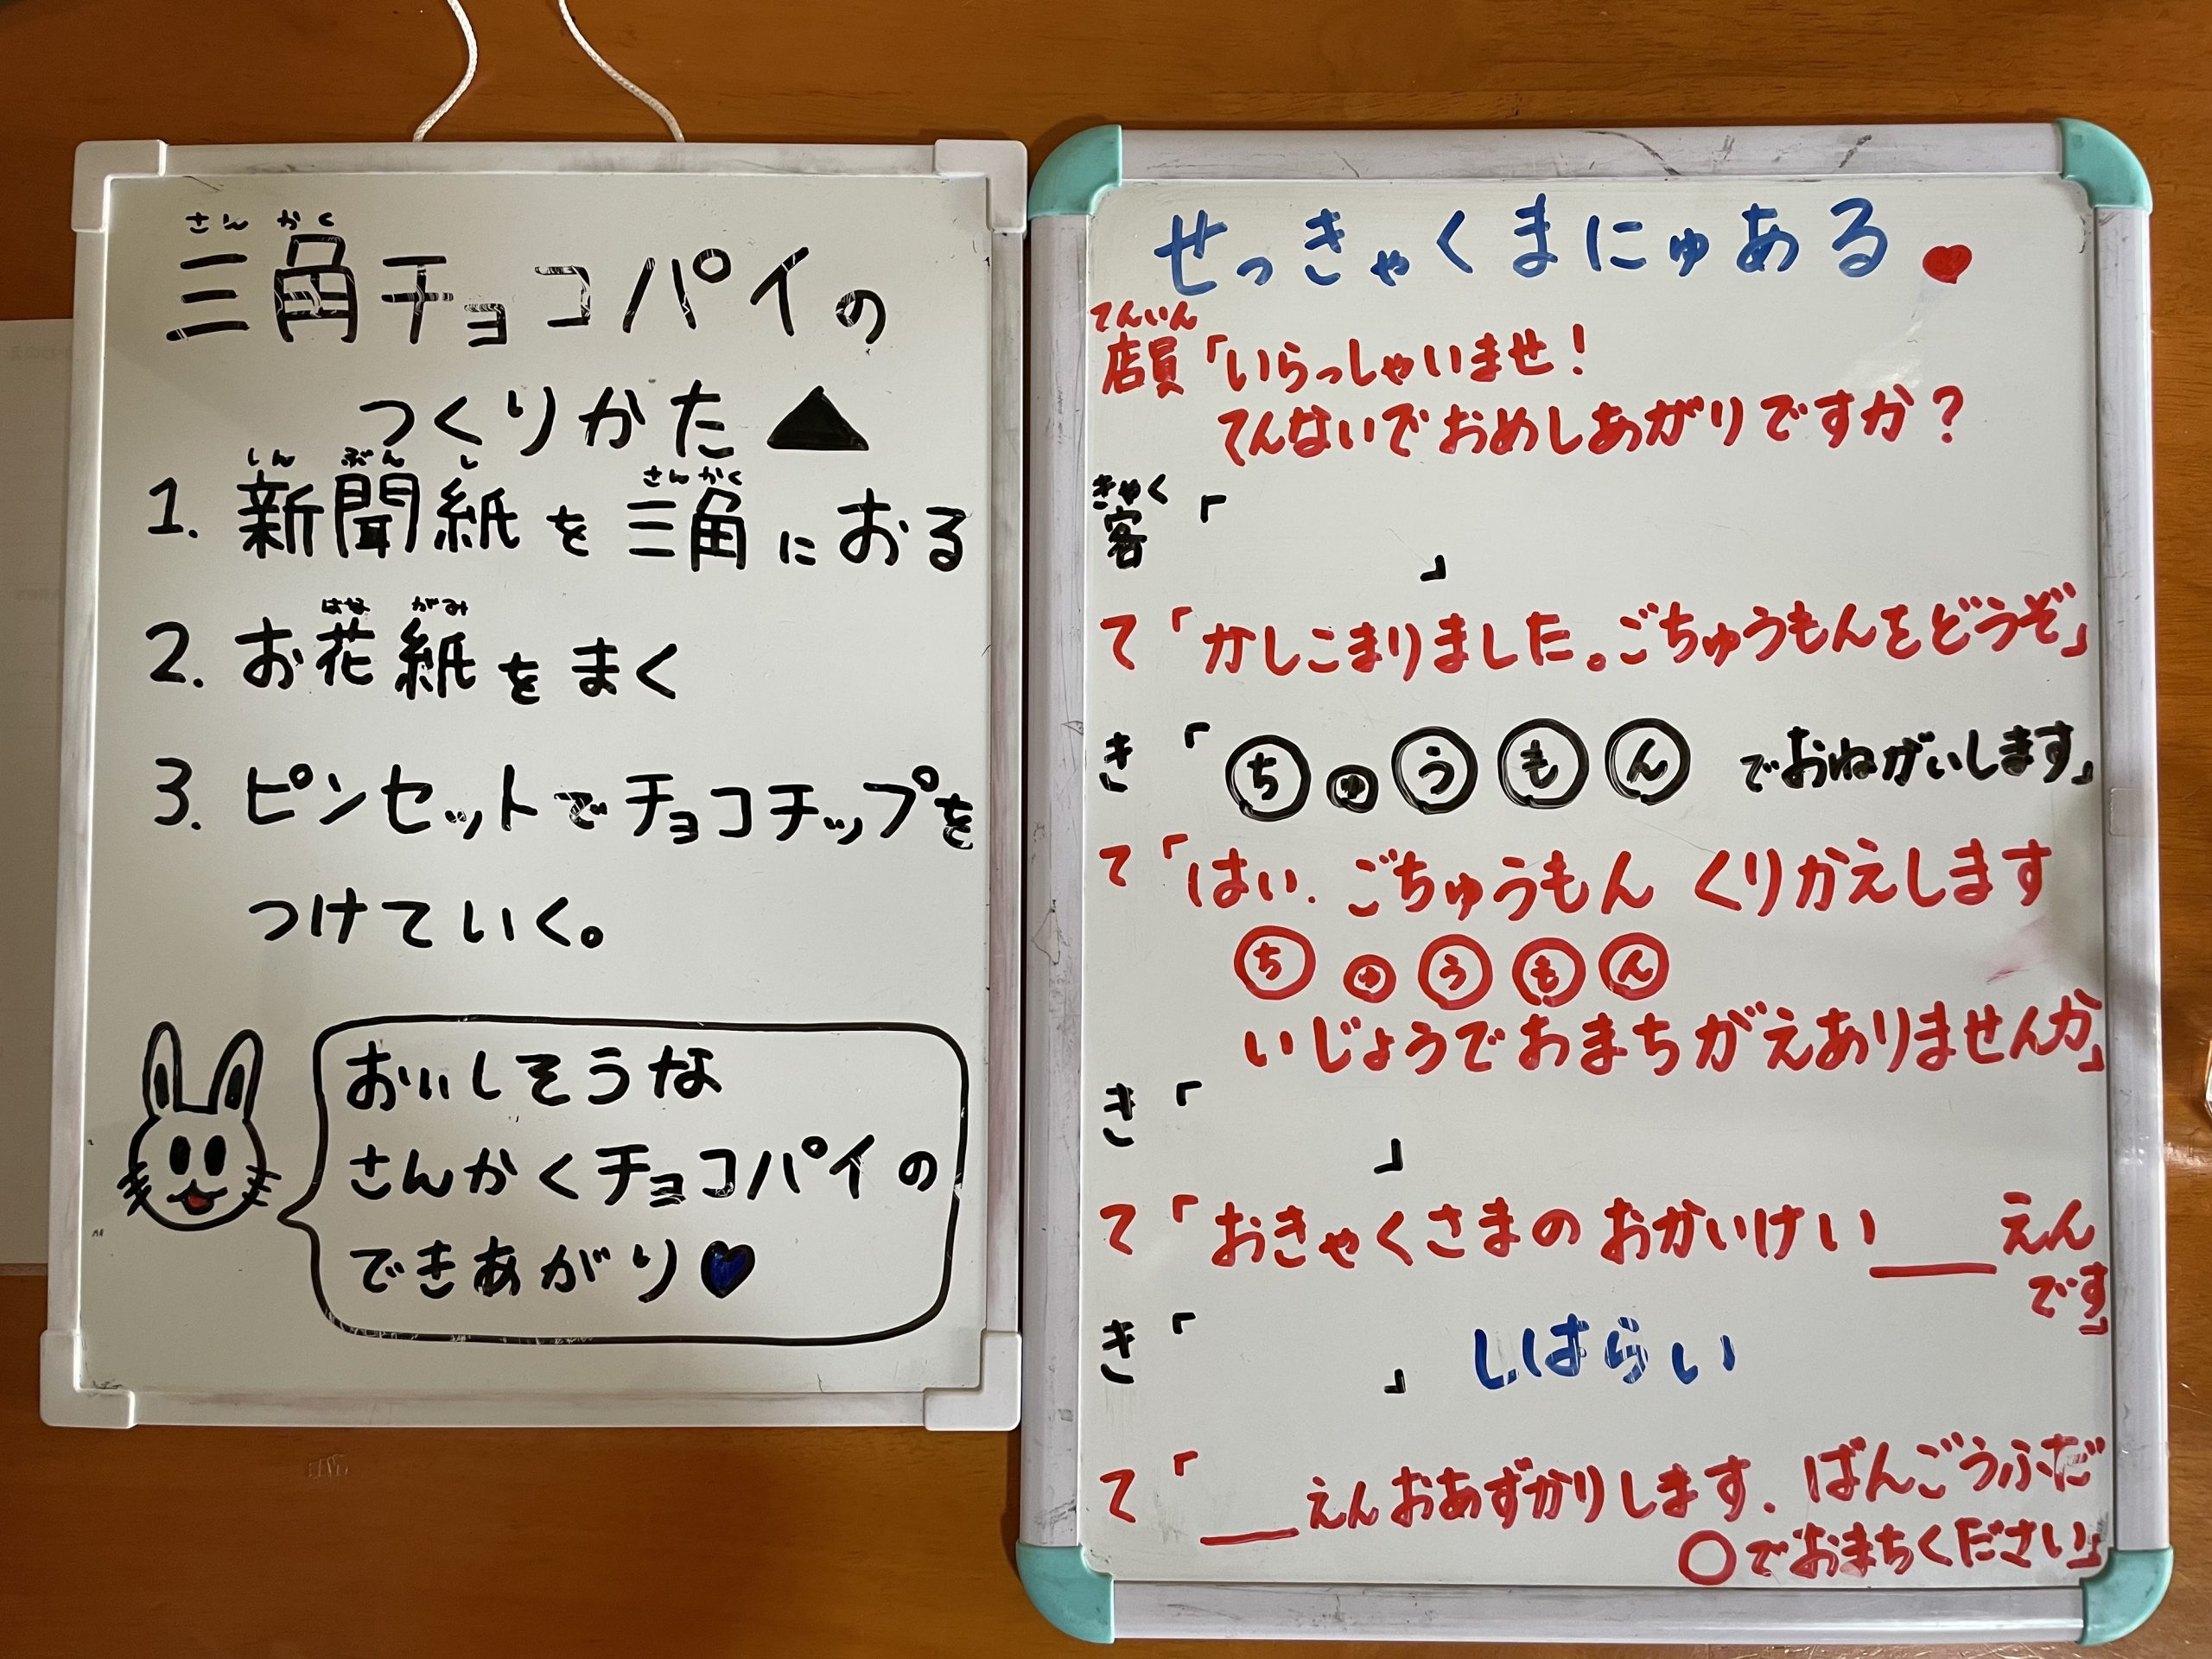 さんかく
三角チョコパイの
つくりかた▲
しんぶんし さんかく
1. 新聞紙を三角におる
はながみ
2. お花紙をまく
3. ピンセットでチョコチップを
つけていく。
おいしそうな
さんかくチョコパイの
できあがり♥
せっきゃくまにゅある♥
てんいん
店員「いらっしゃいませ!
てんないでおめしあがりですか?
きゃく
客「
」
て「かしこまりました。ごちゅうもんをどうぞ」
き「ちゅうもん でおねがいします」
て「はい. ごちゅうもん くりかえします
ちゅうもん
いじょうでおまちがえありませんか」
き「
」
て「おきゃくさまの おかいけい___えん
です」
き「 」しばらい
て「___えんおあずかりします. ばんごうふだ
○でおまちください」